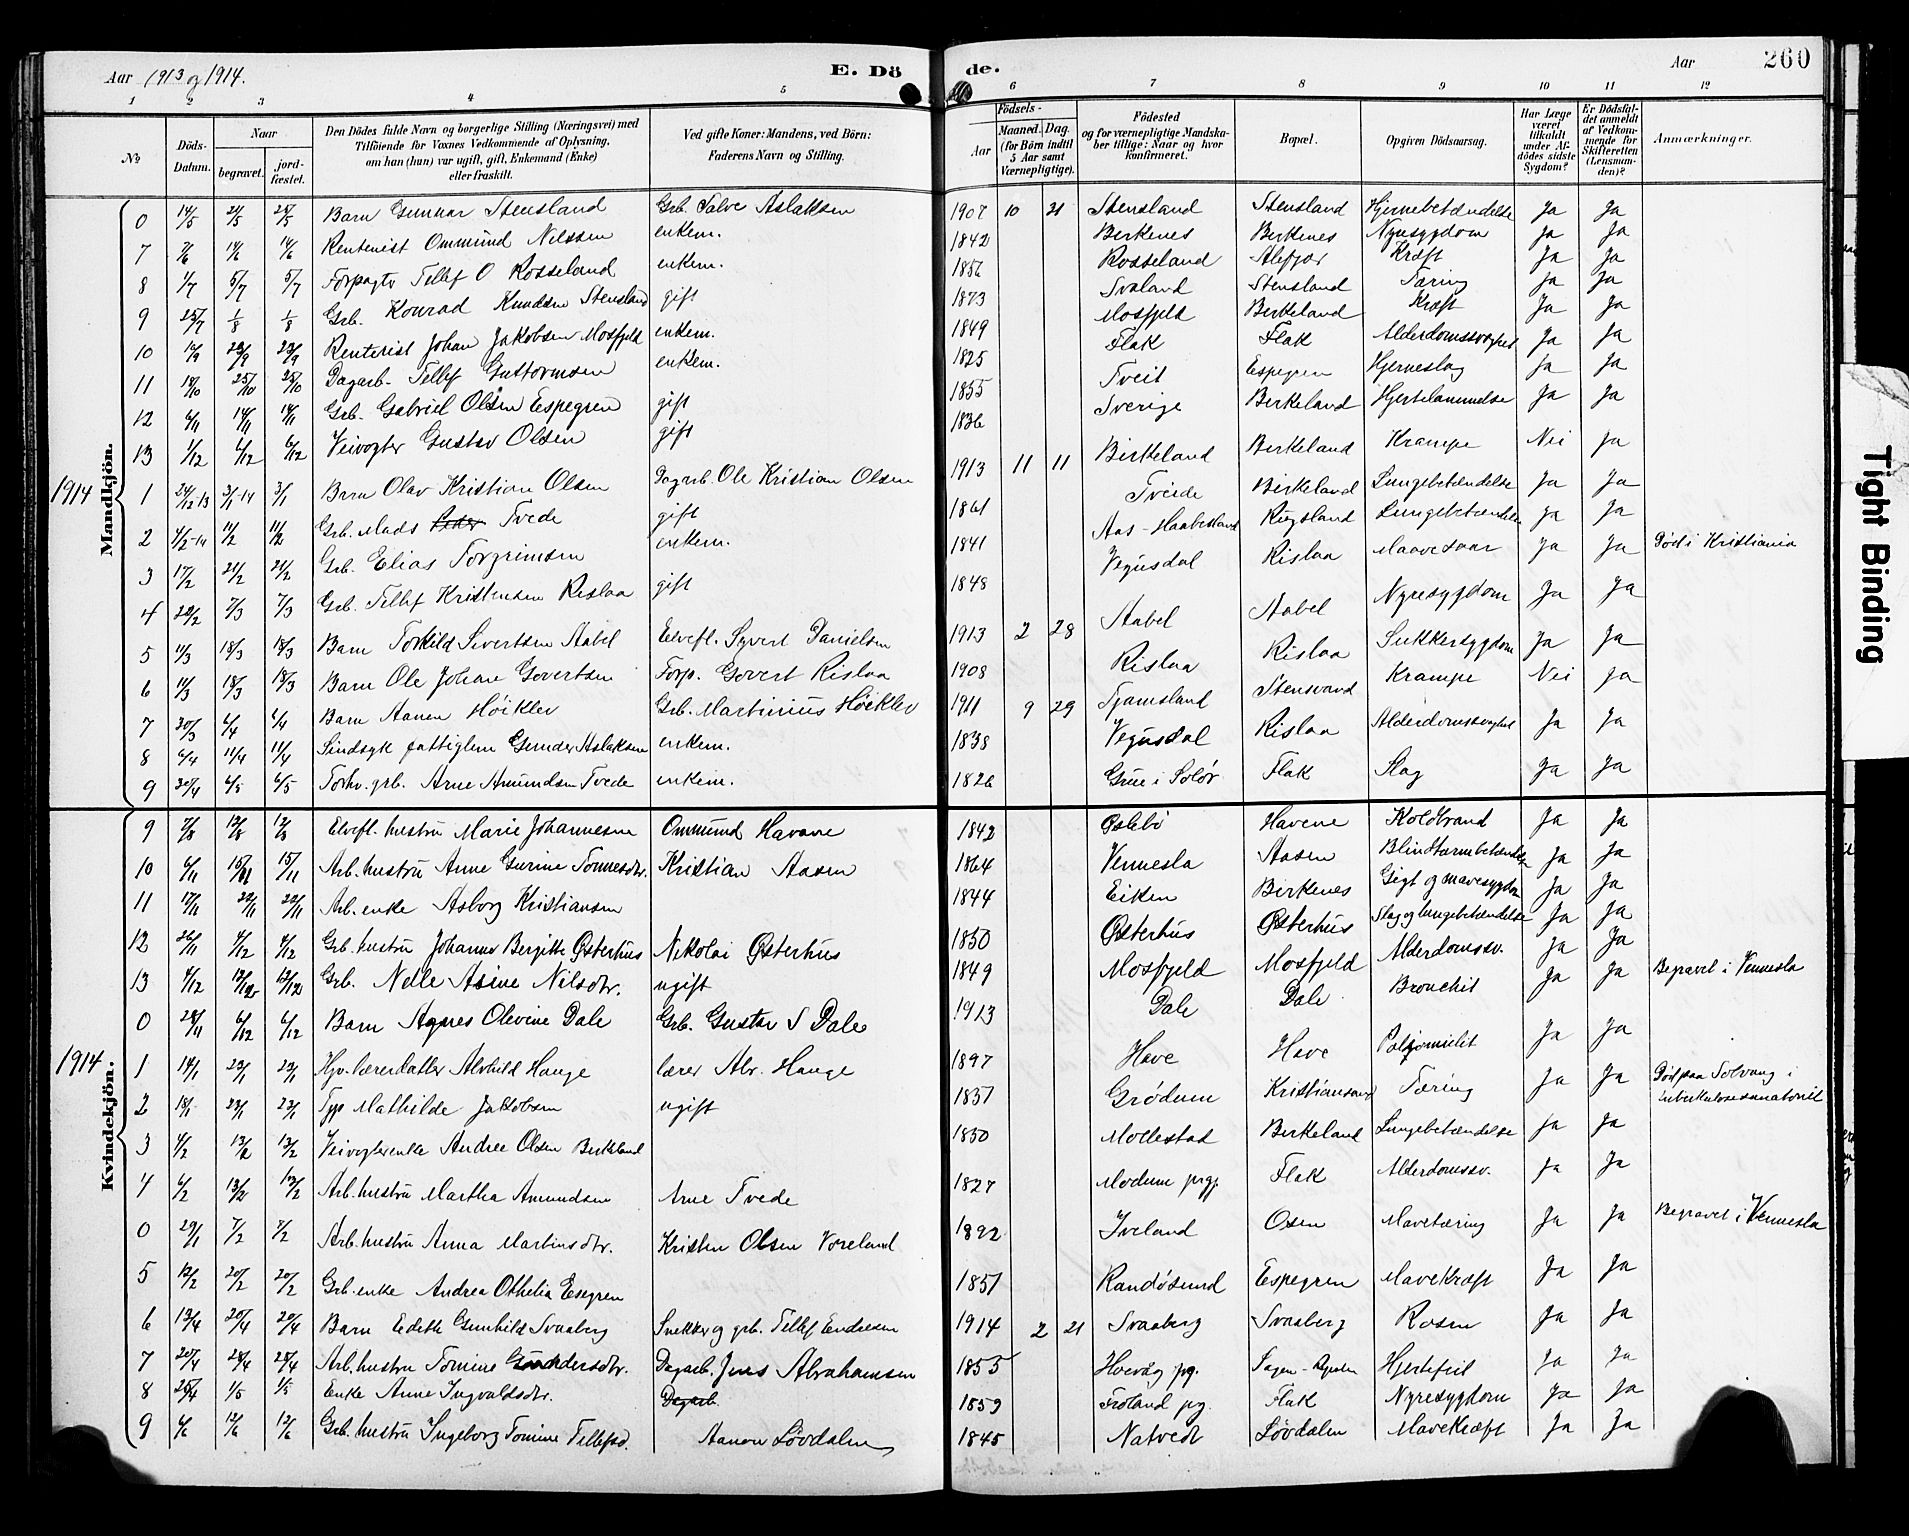 Aar 1913 og 1914. E. Dö de. Aar 260
1 2 3 4 5 6 7 8 9 10 11 12
No
Döds-Datum.
Naar
begravet.
jord-fæstet.
Den Dödes fulde Navn og borgerlige Stilling (Næringsvei) med Tilföiende for Voxnes Vedkommende af Oplysning, om han (hun) var ugift, gift, Enkemand (Enke) eller fraskilt.
Ved gifte Koner: Mandens, ved Börn: Faderens Navn og Stilling.
Födsels-
Aar
Maaned. Dag.
(for Börn indtil 5 Aar samt Værnepligtige).
Födested
og for værnepligtige Mandskaber tillige: Naar og hvor konfirmeret.
Bopæl.
Opgiven Dödsaarsag.
Har Læge været tilkaldt under Afdödes sidste Sygdom?
Er Dödsfaldet anmeldt af Vedkommende for Skifteretten (Lensmanden)?
Anmærkninger.
Mandkjön.
0 14/5 21/5 25/5 Barn Gunnar Stensland Grb. Salve Aslaksen 1907 10 31 Stensland Stensland Hjernebetændelse Ja Ja
7 7/6 14/6 14/6 Rentenist Ommund Nilssen enkem. 1842 Birkenes Birkenes Nyresygdom Ja Ja
8 1/7 5/7 5/7 Forpagter Tellef O Rosseland enkem. Rosseland Kræft Ja Ja
9 25/7 1/8 1/8 Grb. Konrad Knudsen Stensland gift 1873 Svaland Stensland Tæring Ja Ja
10 23/9 23/9 Rentenist Johan Jakobsen Mosfjeld enkem. 1849 Mosfjeld Birkeland Kræft Ja Ja
11 18/10 25/10 25/10 Dagarb. Tellef Guttormsen enkem. 1825 Flak Flak Alderdomssvaghed Ja Ja
12 6/11 14/11 14/11 Grb. Gabriel Olsen Espegren gift 1855 Tveit Espegren Hjerneslag Ja Ja
13 1/12 6/12 6/12 Veivogter Gustav Olsen gift 1836 Sverige Birkeland Hjertelammelse Ja Ja
1914
1 24/12-13 3/1-14 3/1 Barn Olav Kristian Olsen Dagarb. Ole Kristian Olsen 1913 11 11 Birkeland Birkeland Krampe Nei Ja
2 4/2-14 11/2 11/2 Grb. Mads Tvede gift 1861 Tveide Birkeland Lungebetændelse Ja Ja
3 17/2 21/2 21/2 Grb. Elias Torgrimsen enkem. 1841 Aas-Haabesland Rugsland Lungebetændelse Ja Ja Død i Kristiania
4 20/2 7/3 7/3 Grb. Tellef Kristensen Rislaa gift 1848 Vegusdal Rislaa Mavesaar Ja Ja
5 11/3 18/3 18/3 Barn Torkild Sivertsen Aabel Elvefl. Syvert Danielsen 1913 2 28 Aabel Aabel Nyresygdom Ja Ja
6 11/3 18/3 18/3 Barn Ole Johan Govertsen Forp. Govert Rislaa 1908 Rislaa Rislaa Sukkersygdom Ja Ja
7 30/3 4/4 4/4 Barn Aanen Høiklev Grb. Martinius Høiklev 1911 9 29 Tjamsland Stensvand Krampe Nei Ja
8 6/4 11/4 11/4 Sindsyk fattiglem Gunder Aslaksen enkem. 1838 Vegusdal Rislaa Alderdomssvaghed Ja Ja
9 30/4 6/5 6/5 Forhv. grb. Arne Amundsen Tvede enkem. 1826 Grue i Solør Flak Slag Ja Ja
Kvindekjön.
9 7/8 12/8 12/8 Elvefl. hustru Marie Johannesen Ommund Havane 1842 Øslebø Havene Koldbrand Ja Ja
10 6/11 15/11 15/11 Arb. hustru Anne Gurine Tønnesdtr. Kristian Aasen 1864 Vennesla Aasen Blindtarmbetændelse Ja Ja
11 17/11 22/11 22/11 Arb. enke Asborg Kristiansen 1844 Eiken Birkenes Gigt og mavesygdom Ja Ja
12 26/11 4/12 4/12 Grb. hustru Johanne Bergitte Østerhus Nikolai Østerhus 1850 Østerhus Østerhus Slag og lungebetændelse Ja Ja
13 4/12 12/12 12/12 Grb. Nelle Asine Nilsdtr. ugift 1849 Mosfjeld Mosfjeld Alderdomssv. Ja Ja
0 28/11 6/12 6/12 Barn Agnes Olevine Dale Grb. Gustav S Dale 1913 Dale Dale Bronchit Ja Ja Begravet i Vennesla
1914
1 14/1 23/1 23/1 Hjv. lærerdatter Alvhild Hauge lærer Alv. Hauge 1897 Have Have Poljomielit Ja Ja
2 18/1 23/1 23/1 Typ Mathilde Jakobsen ugift Grødum Kristianssand Tæring Ja Ja Død paa Solvang i tuberkulosesanatoriet
3 4/2 12/2 12/2 Veivogterenke Andree Olsen Birkeland 1850 Mollestad Birkeland Lungebetændelse Ja Ja
4 6/2 13/2 13/2 Arb. hustru Martha Amundsen Arne Tvede 1827 Modum prgj. Flak Alderdomssv. Ja Ja
0 29/1 7/2 7/2 Arb. hustru Anna Martinsdtr. Kristen Olsen Voreland 1892 Iveland Osen Mavetæring Ja Ja Begravet i Vennesla
5 12/2 20/2 20/2 Grb. enke Andrea Othelia Espegren 1851 Randøsund Espegren Mavekræft Ja Ja
6 13/4 20/4 20/4 Barn Edith Gunhild Svaaberg Snekker og grb. Tellef Endresen 1914 2 21 Svaaberg Svaaberg Rosen Ja Ja
7 20/4 28/4 28/4 Arb. hustru Tomine Gundersdtr. Dagarb. Jens Abrahamsen 1855 Høvåg pg. Hjertefeil Ja Ja
8 25/4 1/5 1/5 Enke Anne Ingvaldsdtr. Dagarb. 1859 Froland pg. Flak Nyresygdom Ja Ja
9 6/6 12/6 12/6 Grb. hustru Ingeborg Tomine Tellefsd. Aanon Løvdalen 1845 Natvedt Løvdalen Mavekræft Ja Ja
Tight Binding